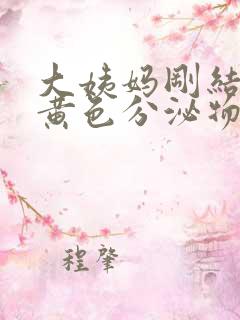 大姨妈刚结
黄色分泌物
程肇